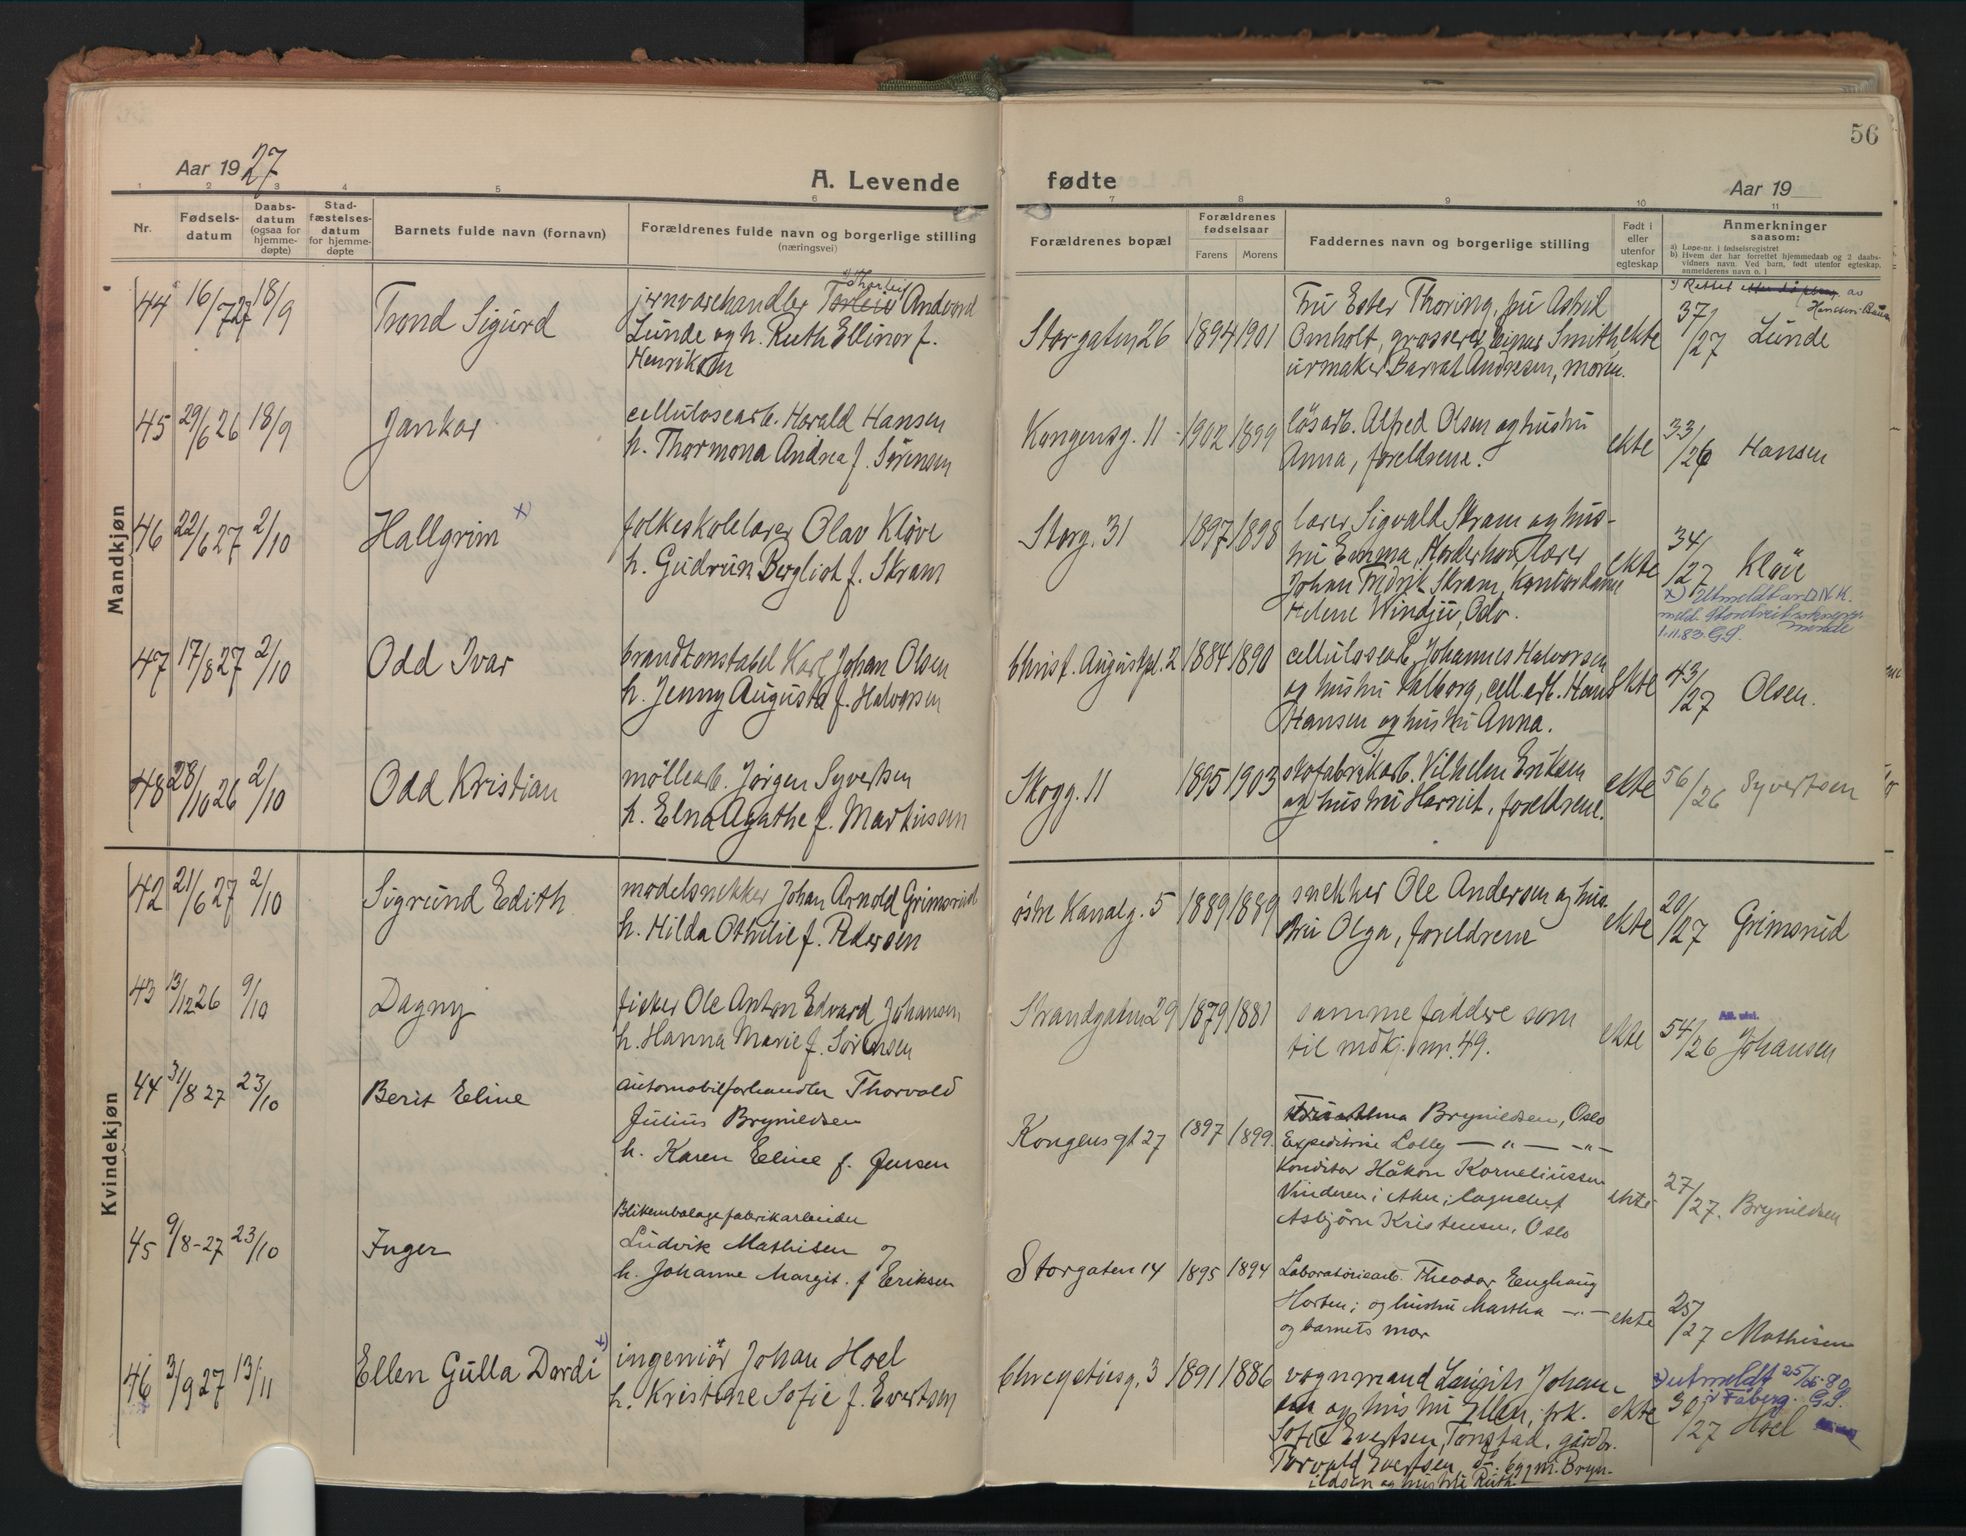 56
Aar 1927
A. Levende fødte
Aar 19
1 2 3 4 5 6 7 8 9 10 11
Nr.
Fødsels-
datum
Daabs-
datum
(ogsaa for
hjemme-
døpte)
Stad-
fæstelses-
datum
for hjemme-
døpte
Barnets fulde navn (fornavn)
Forældrenes fulde navn og borgerlige stilling
(næringsvei)
Forældrenes bopæl
Forældrenes
fødselsaar
Farens Morens
Faddernes navn og borgerlige stilling
Født i
eller
utenfor
egteskap
Anmerkninger
saasom:
a) Løpe-nr. i fødselsregistret
b) Hvem der har forrettet hjemmedaab og 2 daabs-
vidners navn. Ved barn, født utenfor egteskap,
anmelderens navn o. l.
Mandkjøn
44 16/7 27 18/9 Trond Sigurd
jernvarehandler Torleis Andvord
Lunde og h. Ruth Ellinor f.
Henriksen
Storgaten 26 1894 1901
Fru Ester Thoring, fru Astrid
Omholt, grosserer Smith
urmaker Andresen, moren.
ekte
Rettet av
37/27 Lunde
45 29/6 26 18/9 Jankor
cellulosearb. Harald Hansen
h. Thormona Andrea f. Sørensen
Kongensg. 11 1902 1899
løsarb. Alfred Olsen og hustru
Anna, foreldrene.
ekte 33/26 Hansen
46 22/6 27 2/10 Hallgrim x)
folkeskolelærer Olav Kløve
h. Gudrun Bergliot f. Skram
Storg. 31 1897 1898
lærer Sigvald Skram og hus-
tru Emma, lærer
Johan Fredrik Skram, Kontordame
Helene Windju, Oslo.
ekte 34/27 Kløve
x) Utmeldt av D.N.K.
1.11.83. G.S.
47 17/8 27 2/10 Odd Ivar
brandkonstabel Karl Johan Olsen
h. Jenny Augusta f. Halvorsen
Christ. Augustpl. 2 1884 1890
cellulosearb. Johannes Halvorsen
og hustru Valborg, cell.arb. Hans
Hansen og hustru Anna.
ekte 43/27 Olsen.
48 28/10 26 2/10 Odd Kristian
møllearb. Jørgen Syvertsen
h. Elna Agathe f. Markussen
Skogg. 11 1895 1903
skofabrikarb. Vilhelm Eriksen
og hustru Harriet, foreldrene.
ekte 56/26 Syvertsen
Kvindekjøn
42 21/6 27 2/10 Sigrund Edith
modelsnekker Johan Arnold Grimsrud
h. Hilda Othilie f. Pedersen
østre Kanalg. 5 1889 1889
snekker Ole Andersen og hus-
tru Olga, foreldrene
ekte 20/27 Grimsrud
43 13/12 26 9/10 Dagny
fisker Ole Anton Edvard Johansen
h. Hanna Marie f. Sørensen
Strandgaten 29 1879 1881
samme faddere som
til mdkj. nr. 49.
ekte 54/26 Johansen
44 31/8 27 23/10 Berit Eline
Automobilforhandler Thorvald
Julius Brynildsen
h. Karen Eline f. Jensen
Kongens gt 27 1897 1899.
Alma Brynildsen, Oslo
Expeditrise Lolly — " — — " —
Konditor Håkon Korneliussen
Vinderen i Aker; lagerchef
Asbjørn Kristensen, Oslo
ekte 27/27. Brynildsen
45 9/8-27 23/10 Inger
Blikembalagefabrikarbeider
Ludvik Mathisen og
h. Johanne Margit. f Eriksen
Storgaten 14 1895 1894
Laboratoriearb. Theodor Enghaug
Horten; og hustru Martha — " —
og barnets mor
ekte 25/27 Mathisen
46 3/9 27 13/11 Ellen Gulla Dordi x)
ingeniør Johan Hoel
h. Kristiane Sofie f. Evertsen
Chrystiesg. 3 1891 1886
vognmand Lauritz Johan-
sen og hustru Ellen, frk.
Sofie Evertsen, Tonstad, gårdbr.
Torvald Evertsen, byggm. Bryn-
ildsen og hustru Ruth
ekte
x) utmeldt 25/
i Fåberg. G.S.
30/27 Hoel